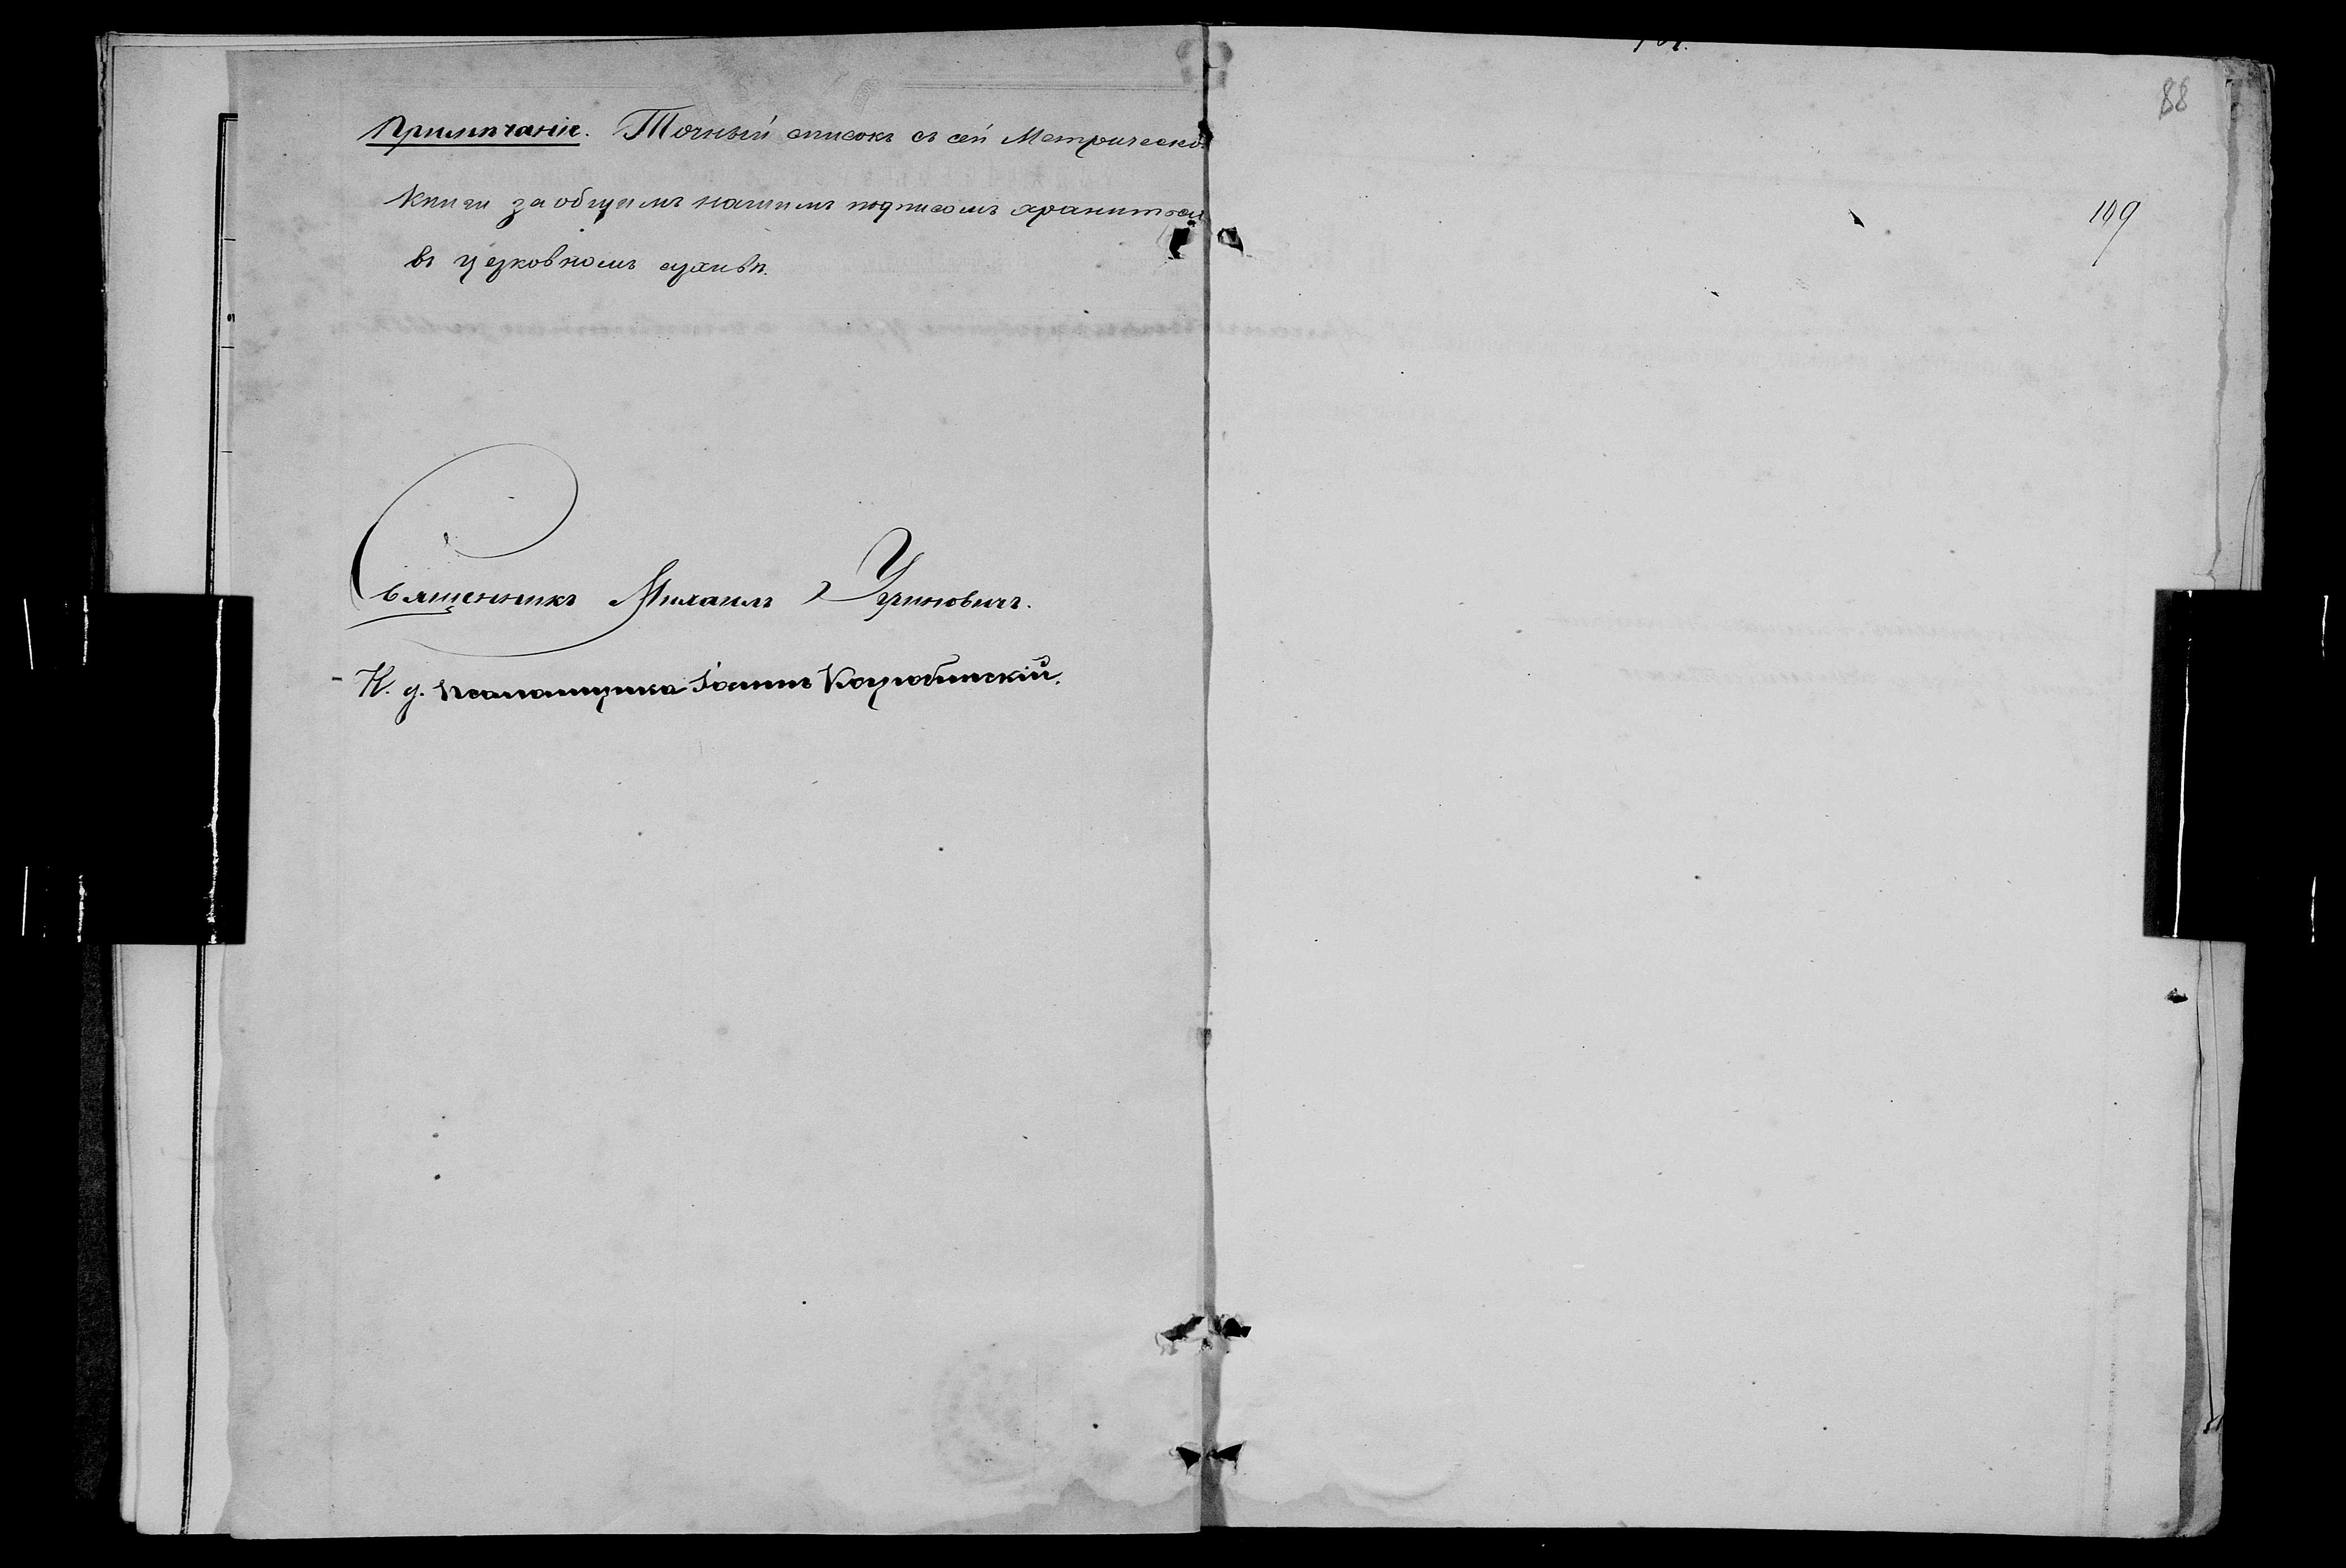 Примѣчаніе. Точный списокъ съ сей Метрической
книги за общимъ нашимъ подписомъ хранится
въ церковномъ архивѣ.
Священникъ Михаилъ
И. д. псаломщика Іоаннъ Козубинскій.
88
109